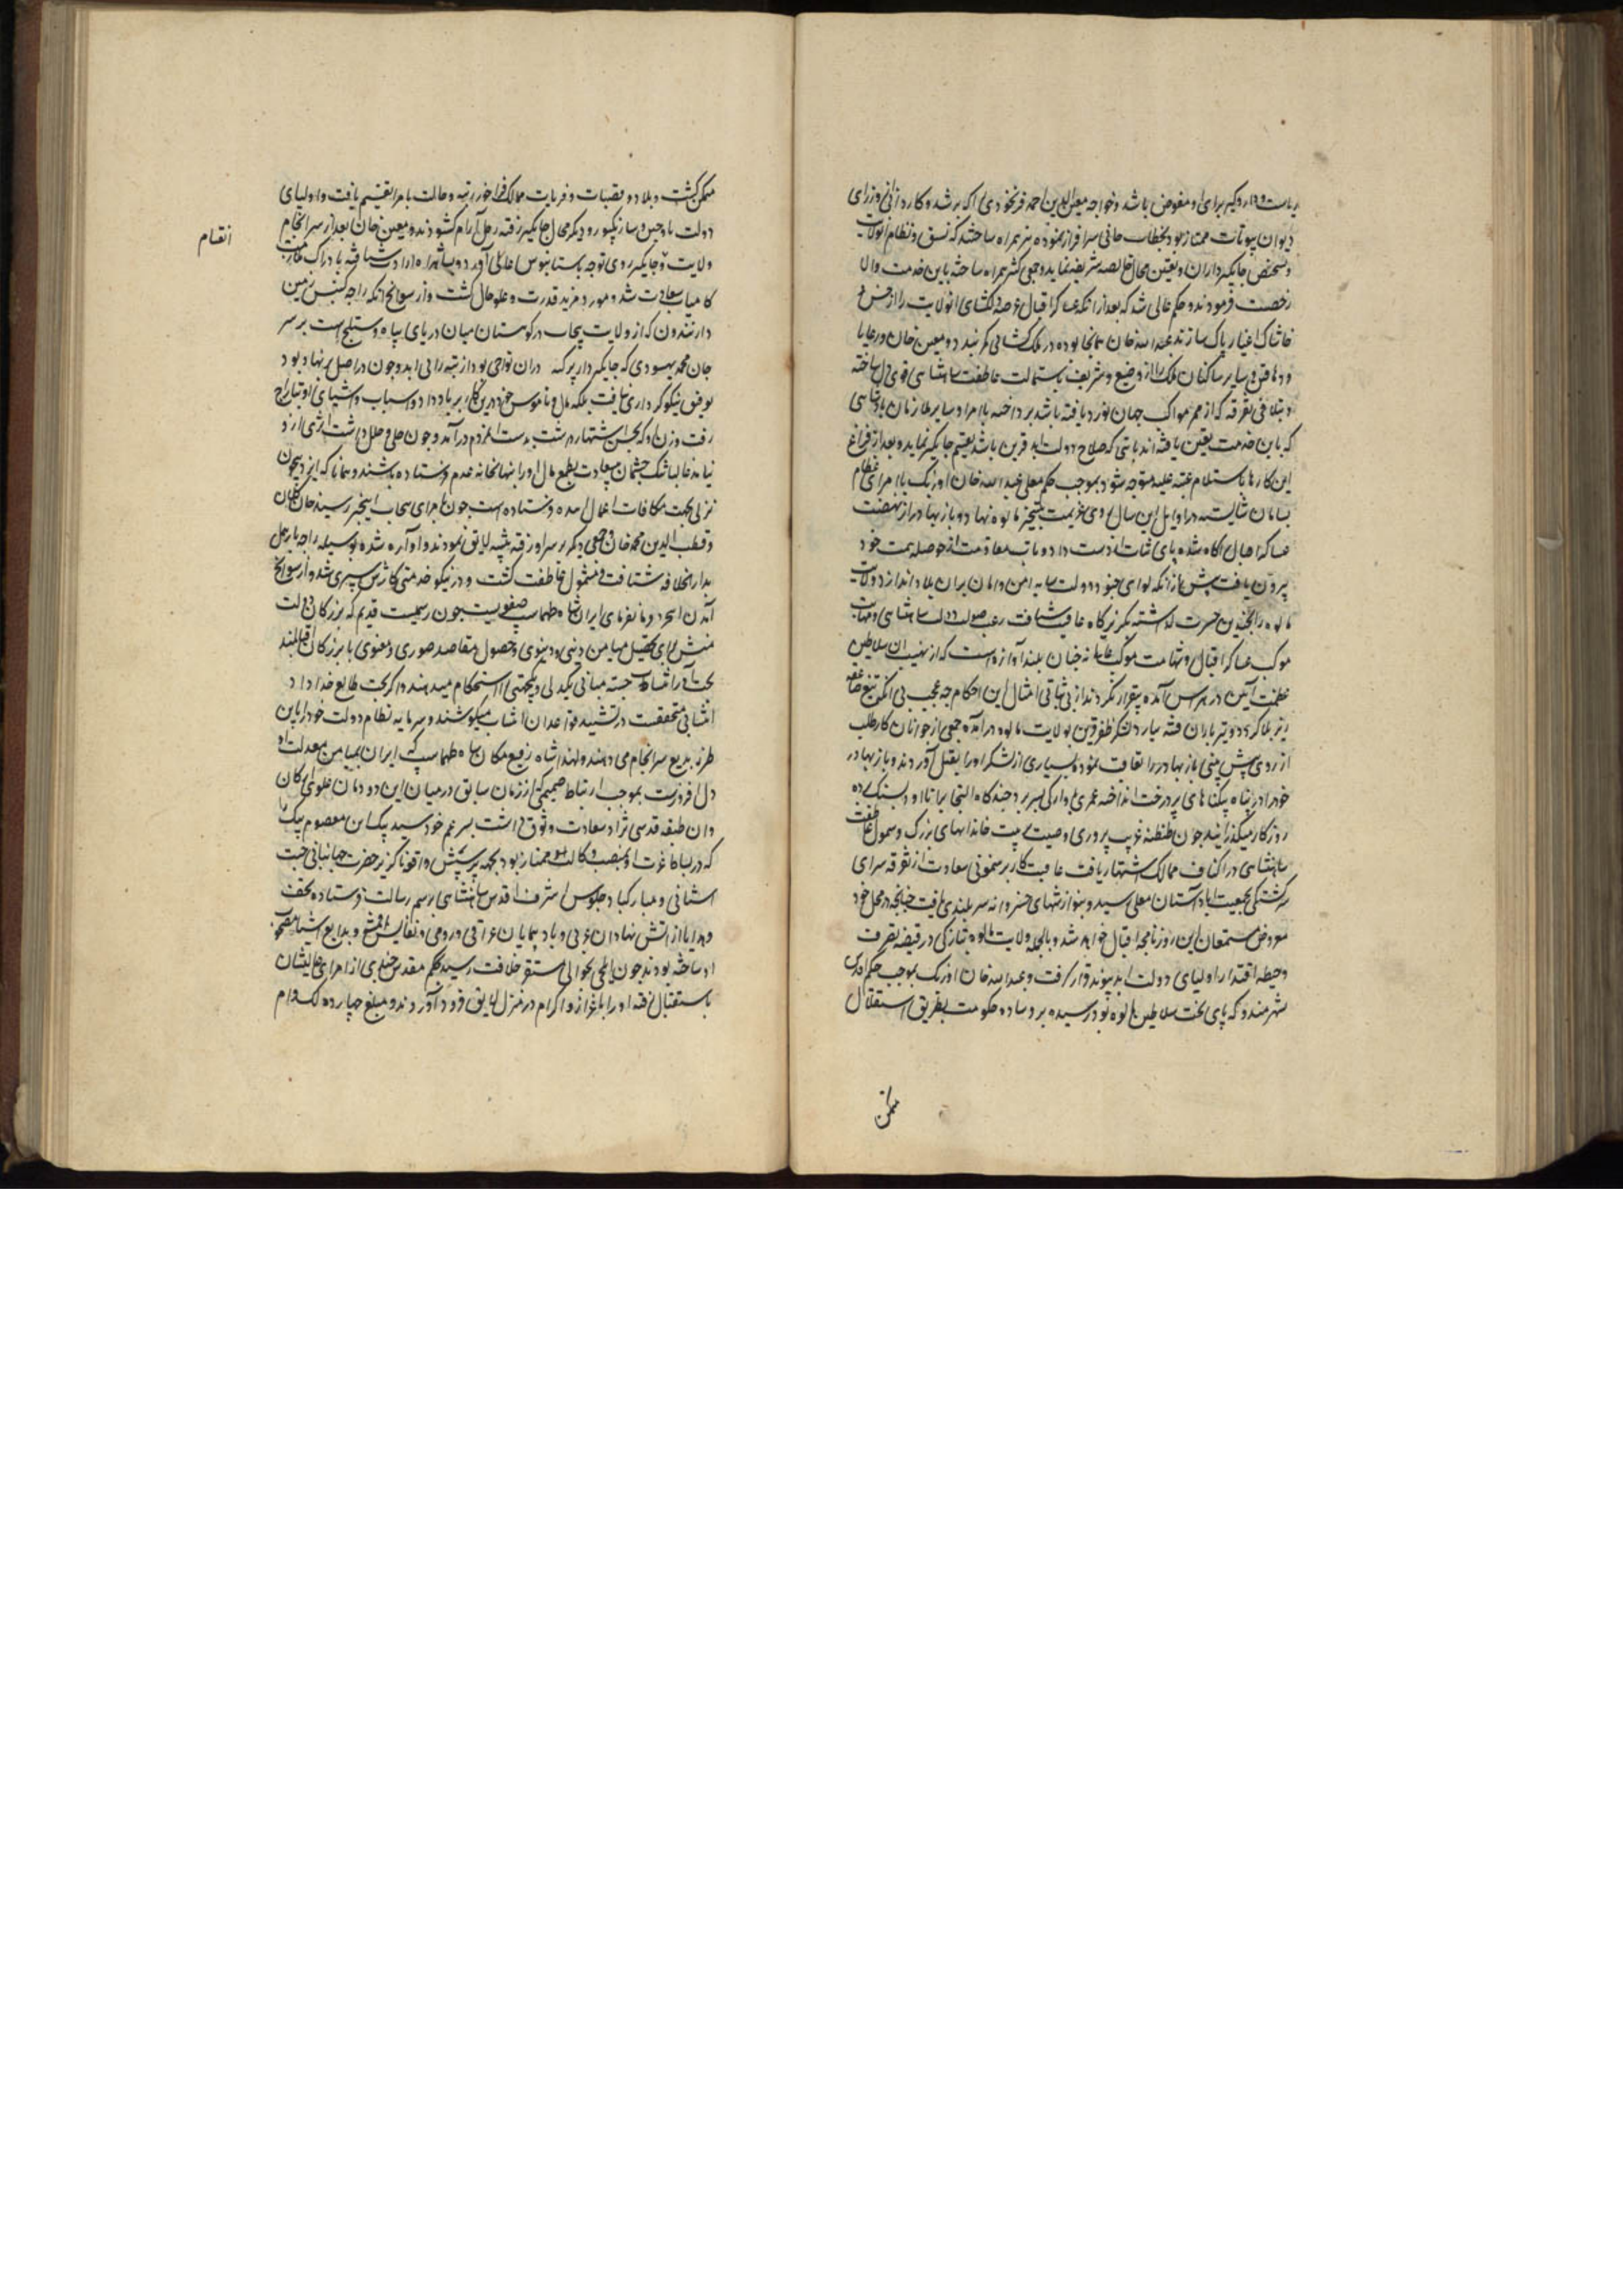 و خواجه معین الدین احمد فرنخودی را که برشد و کاردانی از وزرای
دیوان بیوتات ممتاز بود بخطاب خانی سرافراز نموده نیز همراه ساختند که نسق و نظام انولایت
و تشخیص جایگیرداران و تعیین محال خالصه شریفه نماید و جمعی کثیر همراه ساخته باین خدمت والا
رخصت فرمودند و حکم عالی شد که بعد از آنکه عساکر اقبال عرصه دلکشای انولایت را از خس و
خاشاک اغیار پاک سازند عبدالله خان همانجا بوده در ملک کشائی و معین خان و رعایا
و دهاقین و سایر ساکنان ملک را از وضیع و شریف باستمالت عاطفت شاهنشاهی قوی دل ساخته
و بتلافی تفرقه که از ممر مواکب جهان نورد یافته باشد پرداخته بامرا و سایر ملازمان پادشاهی
که باین خدمت تعیین یافته اند باشی که صلاح دولت ابد قرین باشد تقسیم جایگیر نماید و بعد از فراغ
این کارها باستلام عتبه علیه متوجه شود بموجب حکم معلی عبدالله خان اوزبک با امرای عظام
بسامان شایسته در اوایل این سال روی عزیمت بتسخیر مالوه نهاد و باز بهادر از نهضت
عساکر اقبال آگاه شده پای ثبات از دست داد و تاب مقاومت از حوصله همت خود
بیرون یافت پیش از آنکه لوای جنود دولت سایه امن و امان بران بلاد اندازد ولایت
مالوه را بچندین حسرت گذاشته بگریزگاه عافیت شتافت رعب صولت دولت شاهنشاهی و مهابت
موکب عساکر اقبال و شهامت موکب عالی نه چنان بلند آوازه است که از نهیب ان سلاطین
عظمت آیین در هراس آمده بیقرار نگردند از بی ثباتی امثال این احکام چه عجب بی آنکه تیغ صاعقه
ریز بلا گردد و تیر باران فتنه بیارد لشکر ظفر قرین بولایت مالوه درآمده جمعی از جوانان کارطلب
از روی پیش بینی باز بهادر را تعاقب نموده بسیاری از لشکر او را بقتل آوردند و باز بهادر
خود را در پناه درخت انداخته عمری باوارگی بسر برد چندگاه التجا برانا اودیسنگ برده
روزگار میگذرانید چون طنطنه غریب پروری و صیت تربیت خاندانهای بزرگ و شمول عاطفت
شاهنشاهی در اکناف ممالک اشتهار یافت عاقبت کار برهنمونی سعادت از تفرقه سرای
سرگشتگی بجمعیت اباد آستان معلی رسید و بنوازشهای خسروانه سربلندی یافت چنانچه در محل خود
معروض مستمعان این روزنامچه اقبال خواهد شد و بالجمله ولایت مالوه بتازگی در قبضه تصرف
و حیطه اقتدار اولیای دولت ابد پیوند قرار گرفت و عبدالله خان اوزبک بموجب حکم اقدس
شهر مندو که پای تخت سلاطین مالوه بود رسیده بر وساده حکومت بطریق استقلال
متمکن
متمکن گشت و بلاد و قصبات و قریات ممالک فراخور رتبه و حالت بامرا تقسیم یافت و اولیای
دولت باوجین و سارنگپور و دیگر محال جایگیر رفته رحل آرام گشودند و معین خان بعد از سرانجام
انقسام
ولایت و جایگیر روی توجه باستانبوس عالی آورد و شاهراه ارادت شتافته بادراک ملازمت
کامیاب سعادت شد و مورد مزید قدرت و علو حال گشت و از سوانح آنکه راجه گنیس زمین
دار نندون که از ولایت پنجاب در کوهستان میان دریای بیاه و ستلج است بر سر
جان محمد بهسودی که جایگیردار پرگنه دران نواحی بود از تبه رائی آمد و چون در اصل بدنهاد بود
توفیق نیکوکرداری نیافت بلکه مال و ناموس خود درین کار بر باد داد و اسباب و اشیای او بتاراج
رفت و زن او که بحسن اشتهار داشت بدست مردم درآمد و چون حلی و حلل داشت اثری از و
نیامد غالبا تنک چشمان بی سعادت بطمع مال او را بنهانخانه عدم فرستاده باشند و همانا که ایزد بیچون
نزلی بجهت مکافات اعمال فرستاده است چون ماجرای پنجاب رسید خان کلان
و قطب الدین محمد خان و جمعی دیگر بر سر او رفته تنبیه لایق نمودند و او آواره شده بوسیله راجه تودرمل
بدار الخلافه شتافت و مشمول عاطفت گشت و در نیکو خدمتی کارش سپری شد و از سوانح
آمدن ایلچی فرمانفرمای ایران شاه طهماسپ صفویست چون رسمیست قدیم که بزرگان دولت
منش برای تحصیل میامن دینی و دنیوی و حصول مقاصد صوری و معنوی با بزرگان اقبالمند
بخت آرا جسته مبانی یکدلی و یکجهتی را استحکام میدهند و اگر بخت طالع خداداد
در تشیید قواعد ان میکوشند و سرمایه نظام دولت خود را باین
طرز بدیع سرانجام می دهند و لهذا شاه رفیع مکان شاه طهماسپ که ایران بمیامن معدلت او
دل افروزست بموجب ارتباط صمیمی که از زمان سابق در میان این دودمان علوی ارکان
و ان طبقه قدسی نژاد سعادت وثوق داشت پسر عم خود سید بیک ابن معصوم بیک را
که در بساط عزت او بمنصب وکالت ممتاز بود بجهت پرسش واقعه ناگزیر حضرت جهانبانی جنت
اشیانی و مبارکباد جلوس اشرف اقدس شاهنشاهی برسم رسالت فرستاده تحف
و هدایا از آتش نهادان عربی و باد پیمایان عراقی و رومی و نفایس اقمشه و بدایع اشیا مصحوب
او ساخته بودند چون ایلچی بحوالی مستقر خلافت رسید بحکم مقدس جمعی از امرای عالیشان
باستقبال رفته او را باعزاز و اکرام در منزل لایق فرود آوردند و مبلغ چهارده لک دام